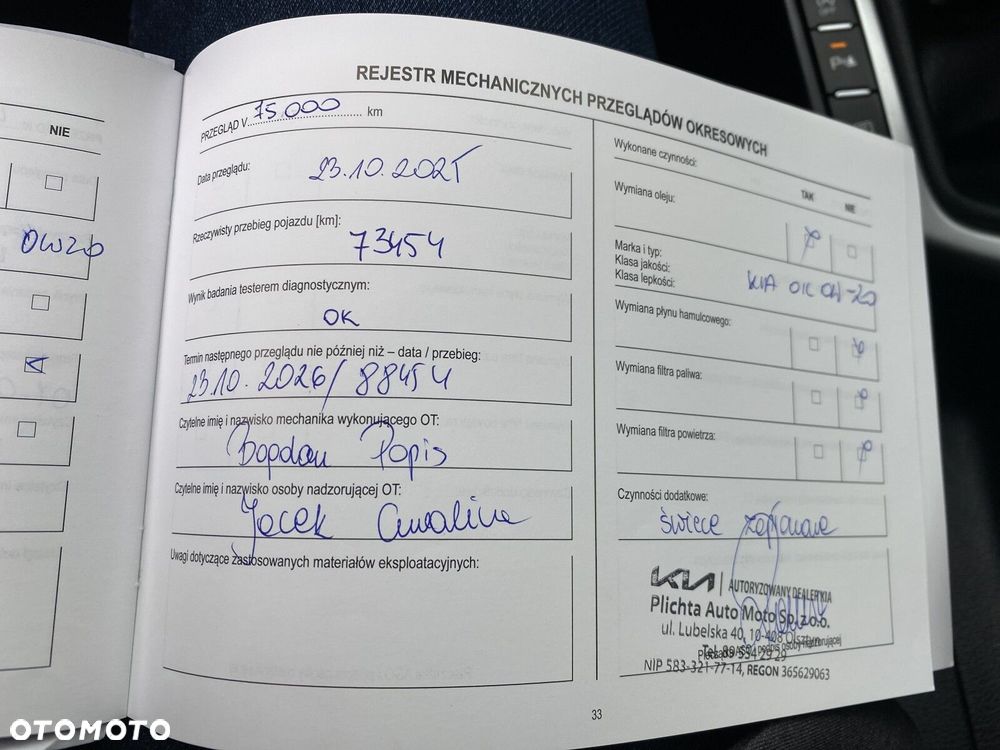 NIE
0W20
REJESTR MECHANICZNYCH PRZEGLĄDÓW OKRESOWYCH
PRZEGLĄD V 75.000 km
Data przeglądu:
23.10.2025
Rzeczywisty przebieg pojazdu [km]:
73454
Wynik badania testerem diagnostycznym:
OK
Termin następnego przeglądu nie później niż – data / przebieg:
23.10.2026/ 88454
Czytelne imię i nazwisko mechanika wykonującego OT:
Bogdan Popis
Czytelne imię i nazwisko osoby nadzorującej OT:
Jacek
Uwagi dotyczące zastosowanych materiałów eksploatacyjnych:
Wykonane czynności:
TAK NIE
Wymiana oleju:
Marka i typ:
Klasa jakości:
Klasa lepkości:
KIA OIL 0W-20
Wymiana płynu hamulcowego:
Wymiana filtra paliwa:
Wymiana filtra powietrza:
Czynności dodatkowe:
świece zapłonowe
KIA | AUTORYZOWANY DEALER KIA
Plichta Auto Moto Sp. z o.o.
ul. Lubelska 40, 10-408 Olsztyn
podpis osoby nadzorującej
NIP 583-321-77-14, REGON 365629063
33
OTOMOTO